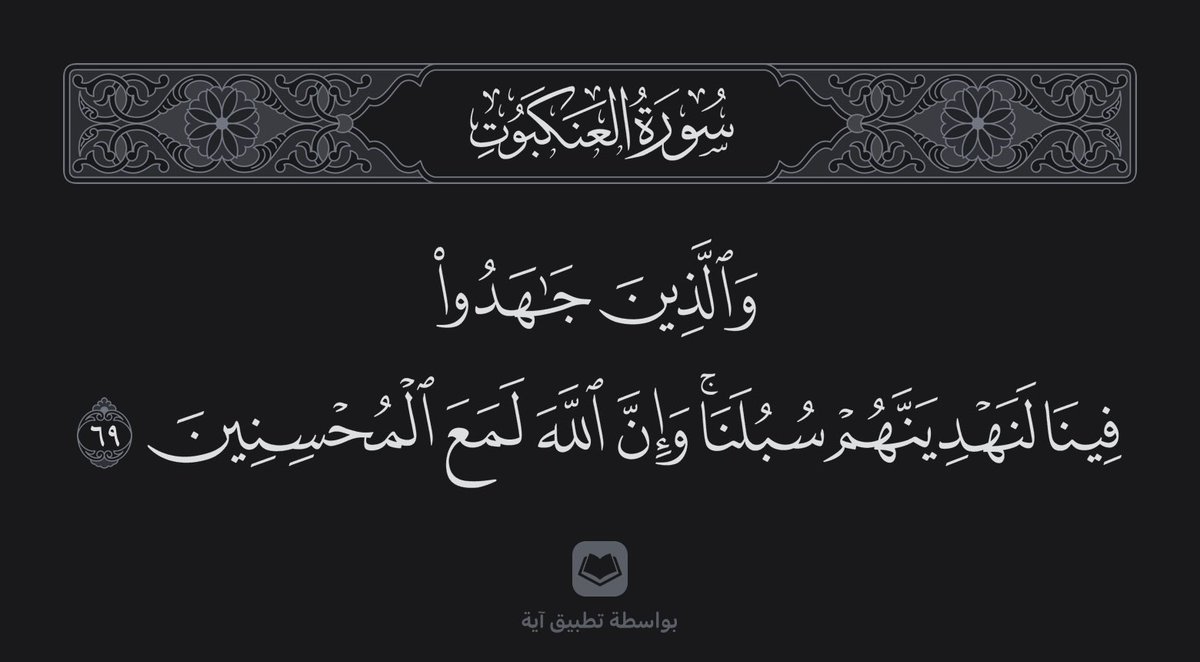 سُورَةُ العَنكَبُوتِ
وَٱلَّذِينَ جَٰهَدُوا۟
فِينَا لَنَهْدِيَنَّهُمْ سُبُلَنَا ۚ وَإِنَّ ٱللَّهَ لَمَعَ ٱلْمُحْسِنِينَ ٦٩
بواسطة تطبيق آية